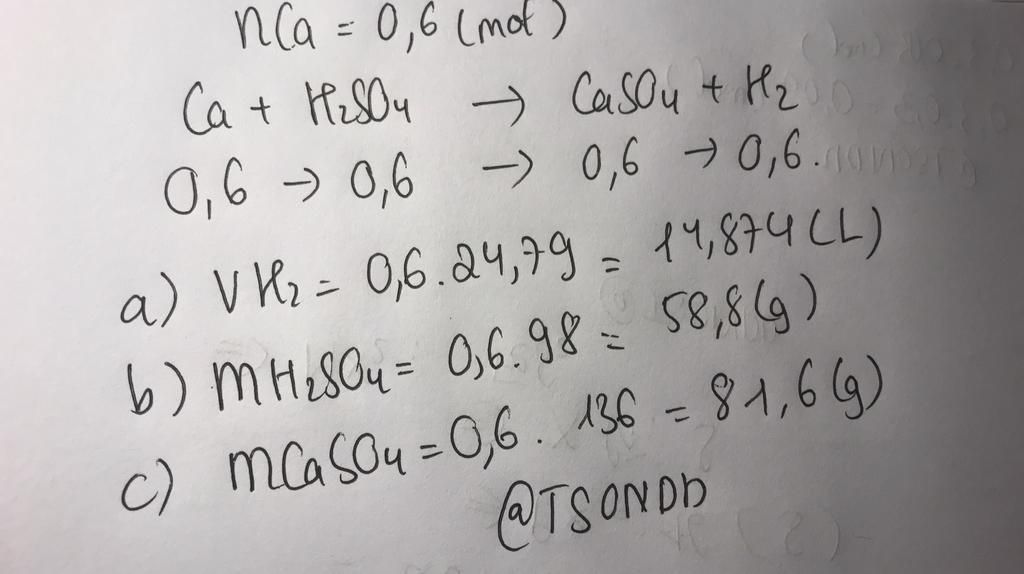 nCa = 0,6 (mol)
Ca + H2SO4 → CaSO4 + H2
0,6 → 0,6 → 0,6 → 0,6.
a) VH2 = 0,6.24,79 = 14,874 (L)
b) mH2SO4 = 0,6.98 = 58,8(g)
c) mCaSO4 = 0,6. 136 = 81,6(g)
@TSONDD